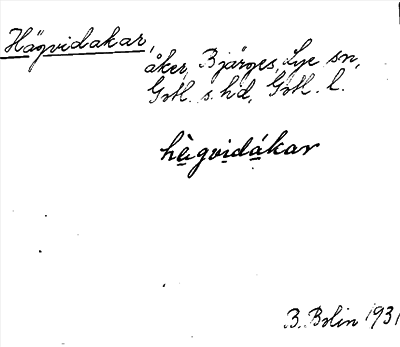 Hägvidakar,
åker, Bjärges, Lye sn,
Gotl. s. hd, Gotl. l.
hàgvidákar
B. Bolin 1931